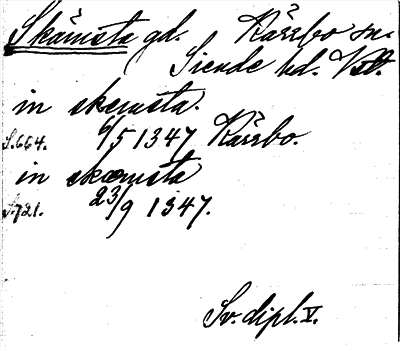 Skämsta gd. Kärrbo sn.
Siende hd. Vstl.
in skæmsta.
S.664. 6/5 1347 Kärrbo.
in skæmsta
S.721. 23/9 1347.
Sv. dipl. V.